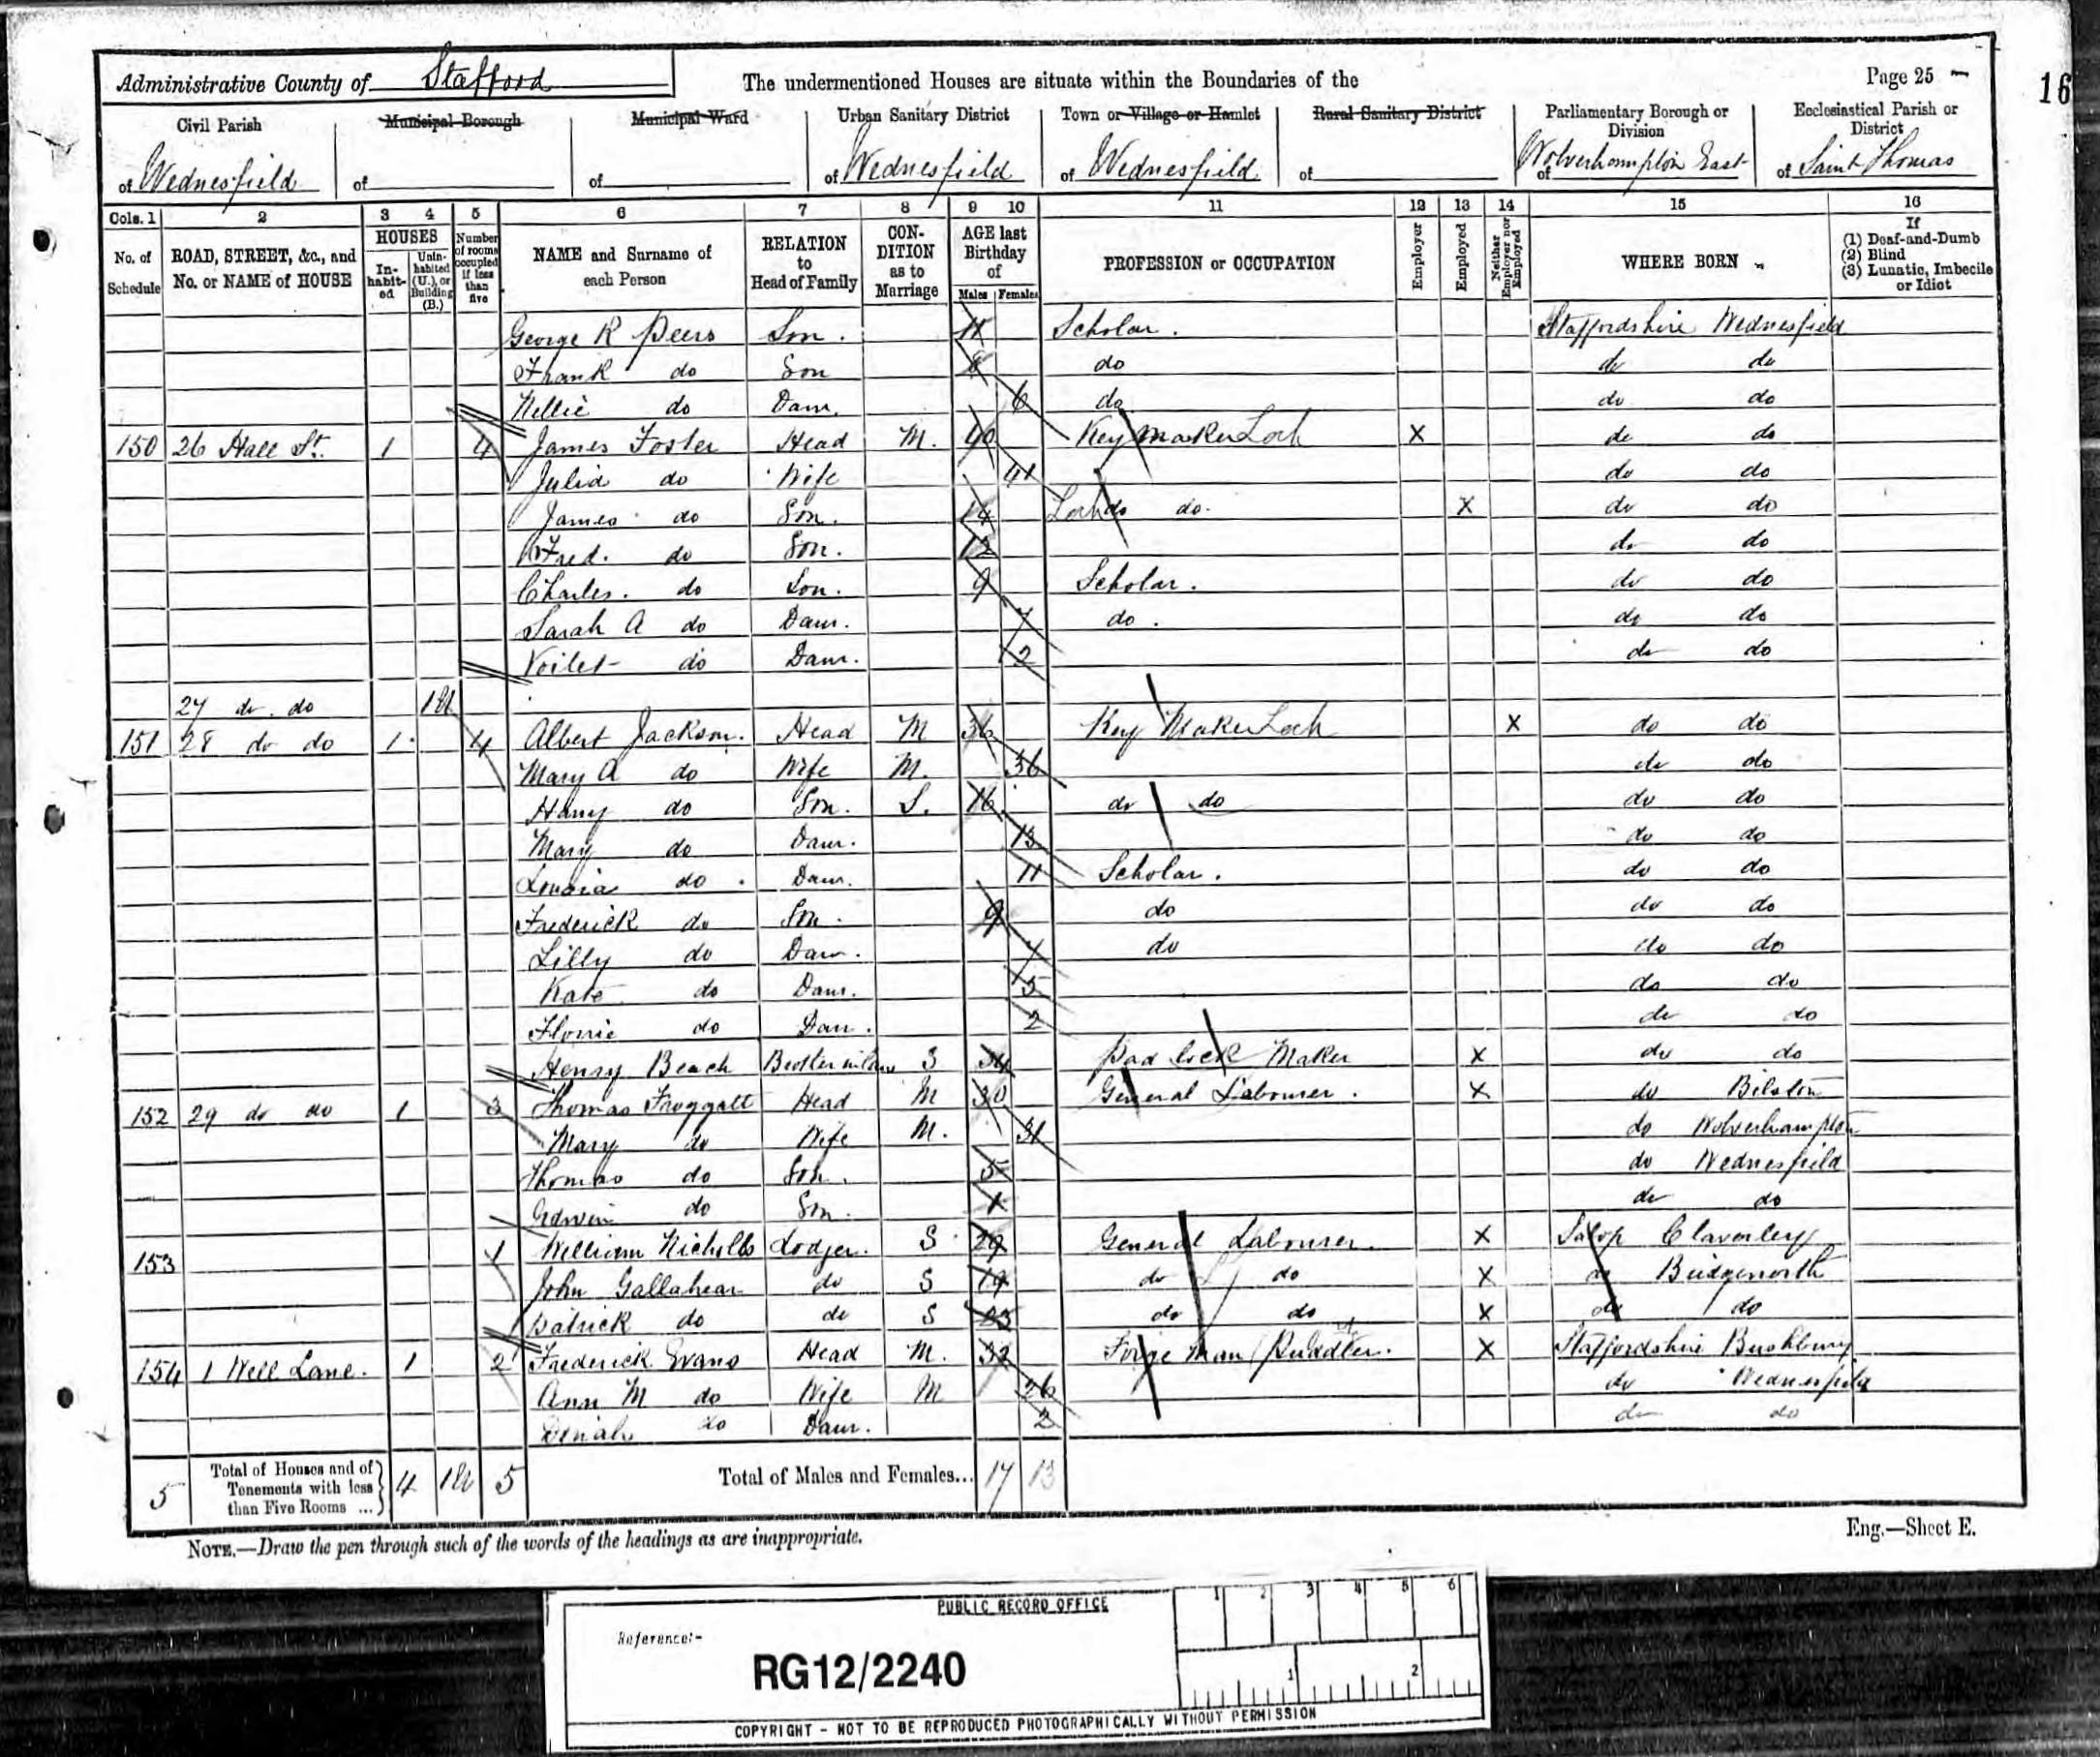 Administrative County of Stafford The undermentioned Houses are situate within the Boundaries of the Page 25 16
Civil Parish Municipal Borough Municipal Ward Urban Sanitary District Town or Village or Hamlet Rural Sanitary District Parliamentary Borough or Division Ecclesiastical Parish or District
of Wednesfield of of of Wednesfield of Wednesfield of of Wolverhampton East of Saint Thomas
Cols. 1 2 3 4 5 6 7 8 9 10 11 12 13 14 15 16
No. of Schedule ROAD, STREET, &c., and No. or NAME of HOUSE HOUSES In-habit-ed Unin-habited (U.), or Building (B.) Number of rooms occupied if less than five NAME and Surname of each Person RELATION to Head of Family CON-DITION as to Marriage AGE last Birthday of Males Females PROFESSION or OCCUPATION Employer Employed Neither Employer nor Employed WHERE BORN If (1) Deaf-and-Dumb (2) Blind (3) Lunatic, Imbecile or Idiot
George R Peers Son. 11 Scholar. Staffordshire Wednesfield
Frank do Son 8 do do do
Nellie do Daur. 6 do do do
150 26 Hall St. 1 4 James Foster Head M. 40 Key Maker Lock X do do
Julia do Wife 41 do do
James do Son. 14 Lock do do. X do do
Fred. do Son. 12 do do
Charles. do Son. 9 Scholar. do do
Sarah A do Daur. 7 do. do do
Voilet do Daur. 2 do do
27 do. do 1U
151 28 do do 1 4 Albert Jackson. Head M 36 Key Maker Lock X do do
Mary A do Wife M. 36 do do
Harry do Son. S. 16 do do do do
Mary do Daur. 13 do do
Louisia do Daur. 11 Scholar. do do
Frederick do Son. 9 do do do
Lilly do Daur. 7 do do do
Kate do Daur. 5 do do
Florrie do Daur. 2 do do
Henry Beach Brother in law S 34 Pad lock Maker X do do
152 29 do do 1 3 Thomas Froggatt Head M 30 General Labourer. X do Bilston
Mary do Wife M. 31 do Wolverhampton
Thomas do Son. 5 do Wednesfield
Edwin do Son. 1 do do
153 1 William Nicholls Lodger. S 29 General Labourer. X Salop Claverley
John Gallahear do S 19 do do X do Bridgenorth
Patrick do do S 23 do do X do do
154 1 Well Lane. 1 2 Frederick Evans Head M. 32 Forge Man Puddler. X Staffordshire Bushbury
Ann M do Wife M 26 do Wednesfield
Denah do Daur. 2 do do
5 Total of Houses and of Tenements with less than Five Rooms ... 4 1U 5 Total of Males and Females... 17 13
NOTE.—Draw the pen through such of the words of the headings as are inappropriate. Eng.—Sheet E.
PUBLIC RECORD OFFICE
1 2 3 4 5 6
Reference:-
RG12/2240
1 2
COPYRIGHT - NOT TO BE REPRODUCED PHOTOGRAPHICALLY WITHOUT PERMISSION